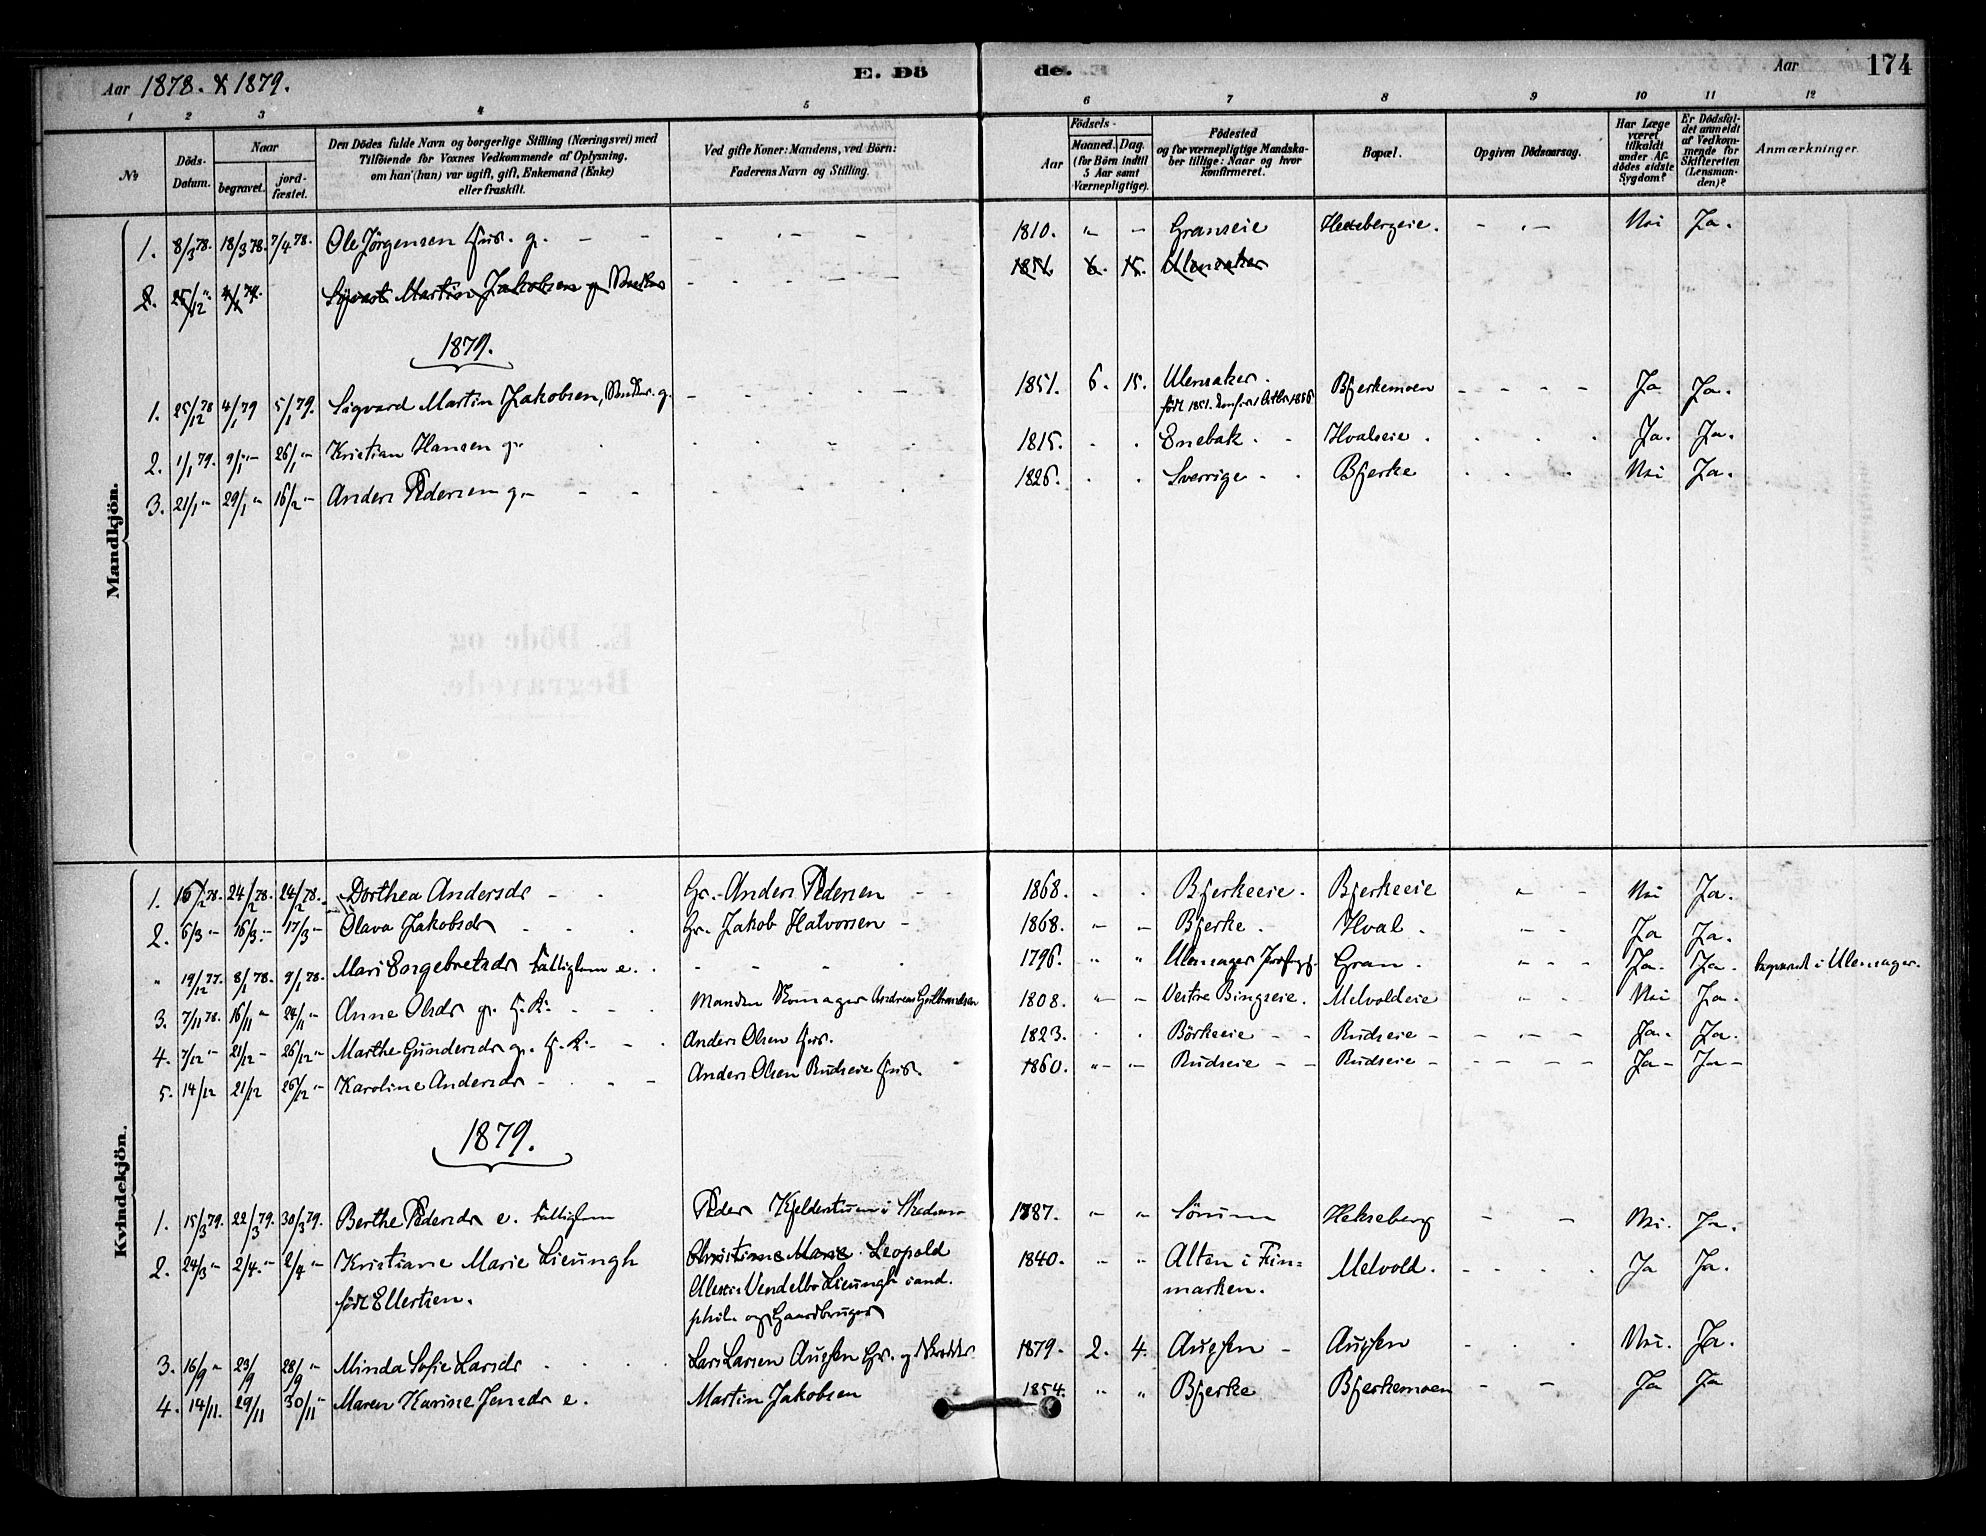 Aar 1878. & 1879.
E. Dö
de.
Aar
174
1 2 3 4 5 6 7 8 9 10 11 12
No
Döds-Datum.
Naar
begravet.
jord-fæstet.
Den Dödes fulde Navn og borgerlige Stilling (Næringsvei) med
Tilföiende for Voxnes Vedkommende af Oplysning,
om han (hun) var ugift, gift, Enkemand (Enke)
eller fraskilt.
Ved gifte Koner: Mandens, ved Börn:
Faderens Navn og Stilling.
Födsels-
Aar
Maaned. Dag.
(for Börn indtil
5 Aar samt
Værnepligtige).
Födested
og for værnepligtige Mandska-
ber tillige: Naar og hvor
konfirmeret.
Bopæl.
Opgiven Dödsaarsag.
Har Læge
været
tilkaldt
under Af-
dödes sidste
Sygdom?
Er Dödsfal-
det anmeldt
af Vedkom-
mende for
Skifteretten
(Lensman-
den)?
Anmærkninger.
Mandkjön.
1. 8/3 78. 18/3 78. 7/4 78. Ole Jörgensen Hus. g. - - - - 1810. " - Granseie Hexebergeie. - - - Nei Ja.
2. 25/12 " 4/1 79. Sigvart Martin Jakobsen g. - - - - 1851. 6. 15. Ulensaker
1879.
1. 25/12 78 4/1 79 5/1 79. Sigvard Martin Jakobsen, g. - - - - 1851. 6. 15. Ulensaker. Bjerkemoen - - - - Ja Ja.
födt 1851.
2. 1/1 79. 9/1 " 26/1 " Kristian Hansen g. 1815. Enebak. - Hvalseie. Ja. Ja.
3. 21/1 " 29/1 " 16/2 " Anders Pedersen g. - - 1826. Sverrige - Bjerke Nei Ja.
Kvindekjön.
1. 16/2 78. 24/2 78. 24/2 78. Dorthea Andersdr - Gr. Anders Pedersen - - 1868. Bjerkeeie. Bjerkeeie " - - Nei Ja.
2. 6/3 " 16/3 " 17/3 " Olava Jakobsdr Gr. Jakob Halvorsen - 1868. - - Bjerke. Hval. - - Ja Ja.
" 19/12 77. 8/1 78. 9/1 78. Mari Engebretsdr Fattiglem e. 1796. " " Ulensager Gran. " - - Ja. Ja. begravet i Ulensager.
3. 7/11 78. 16/11 " 24/11 " Anne Olsdr g. F. K. - - Manden Romager Andreas Gulbrandsen 1808. " - Vestre Bingseie. Melvoldeie - - Nei Ja.
4. 7/12 " 21/12 - 26/12 " Marthe Gundersdr g. F. K. - Anders Olsen Hus. 1823. Börkeeie - - Rudseie - - - - Ja. Ja.
5. 14/12 21/12 26/12 " Karoline Andersdr - - Anders Olsen Rudseie Hus. - 1860. " - Rudseie - - Rudseie - - - - Ja - Ja -
1879.
1. 15/3 79. 22/3 79. 30/3 79. Berthe Pedersdr e. Fattiglem Peder Kjelderstuen i Skedsmo 1787. " " Sörum Hekseberg - - Nei. Ja.
2. 24/3 " 2/4 " 2/4 " Kristiane Marie Lieungh Christiane Marie. Leopold 1840. " " Alten i Fin= Melvold. - - - - Ja Ja.
födt Ellertsen. Vendelbo Lieungh cand. marken.
phil. og Gaardbruger
3. 16/9 " 23/9 28/9 " Minda Sofie Larsdr Lars Larsen Augsen Gr. og Skrædder 1879. 2. 4. Augsen - Augsen Nei. Ja.
4. 14/11. 29/11 30/11 " Maren Karine Jensdr e. Martin Jakobsen 1854. " " Bjerke Bjerkemoen - - Ja Ja